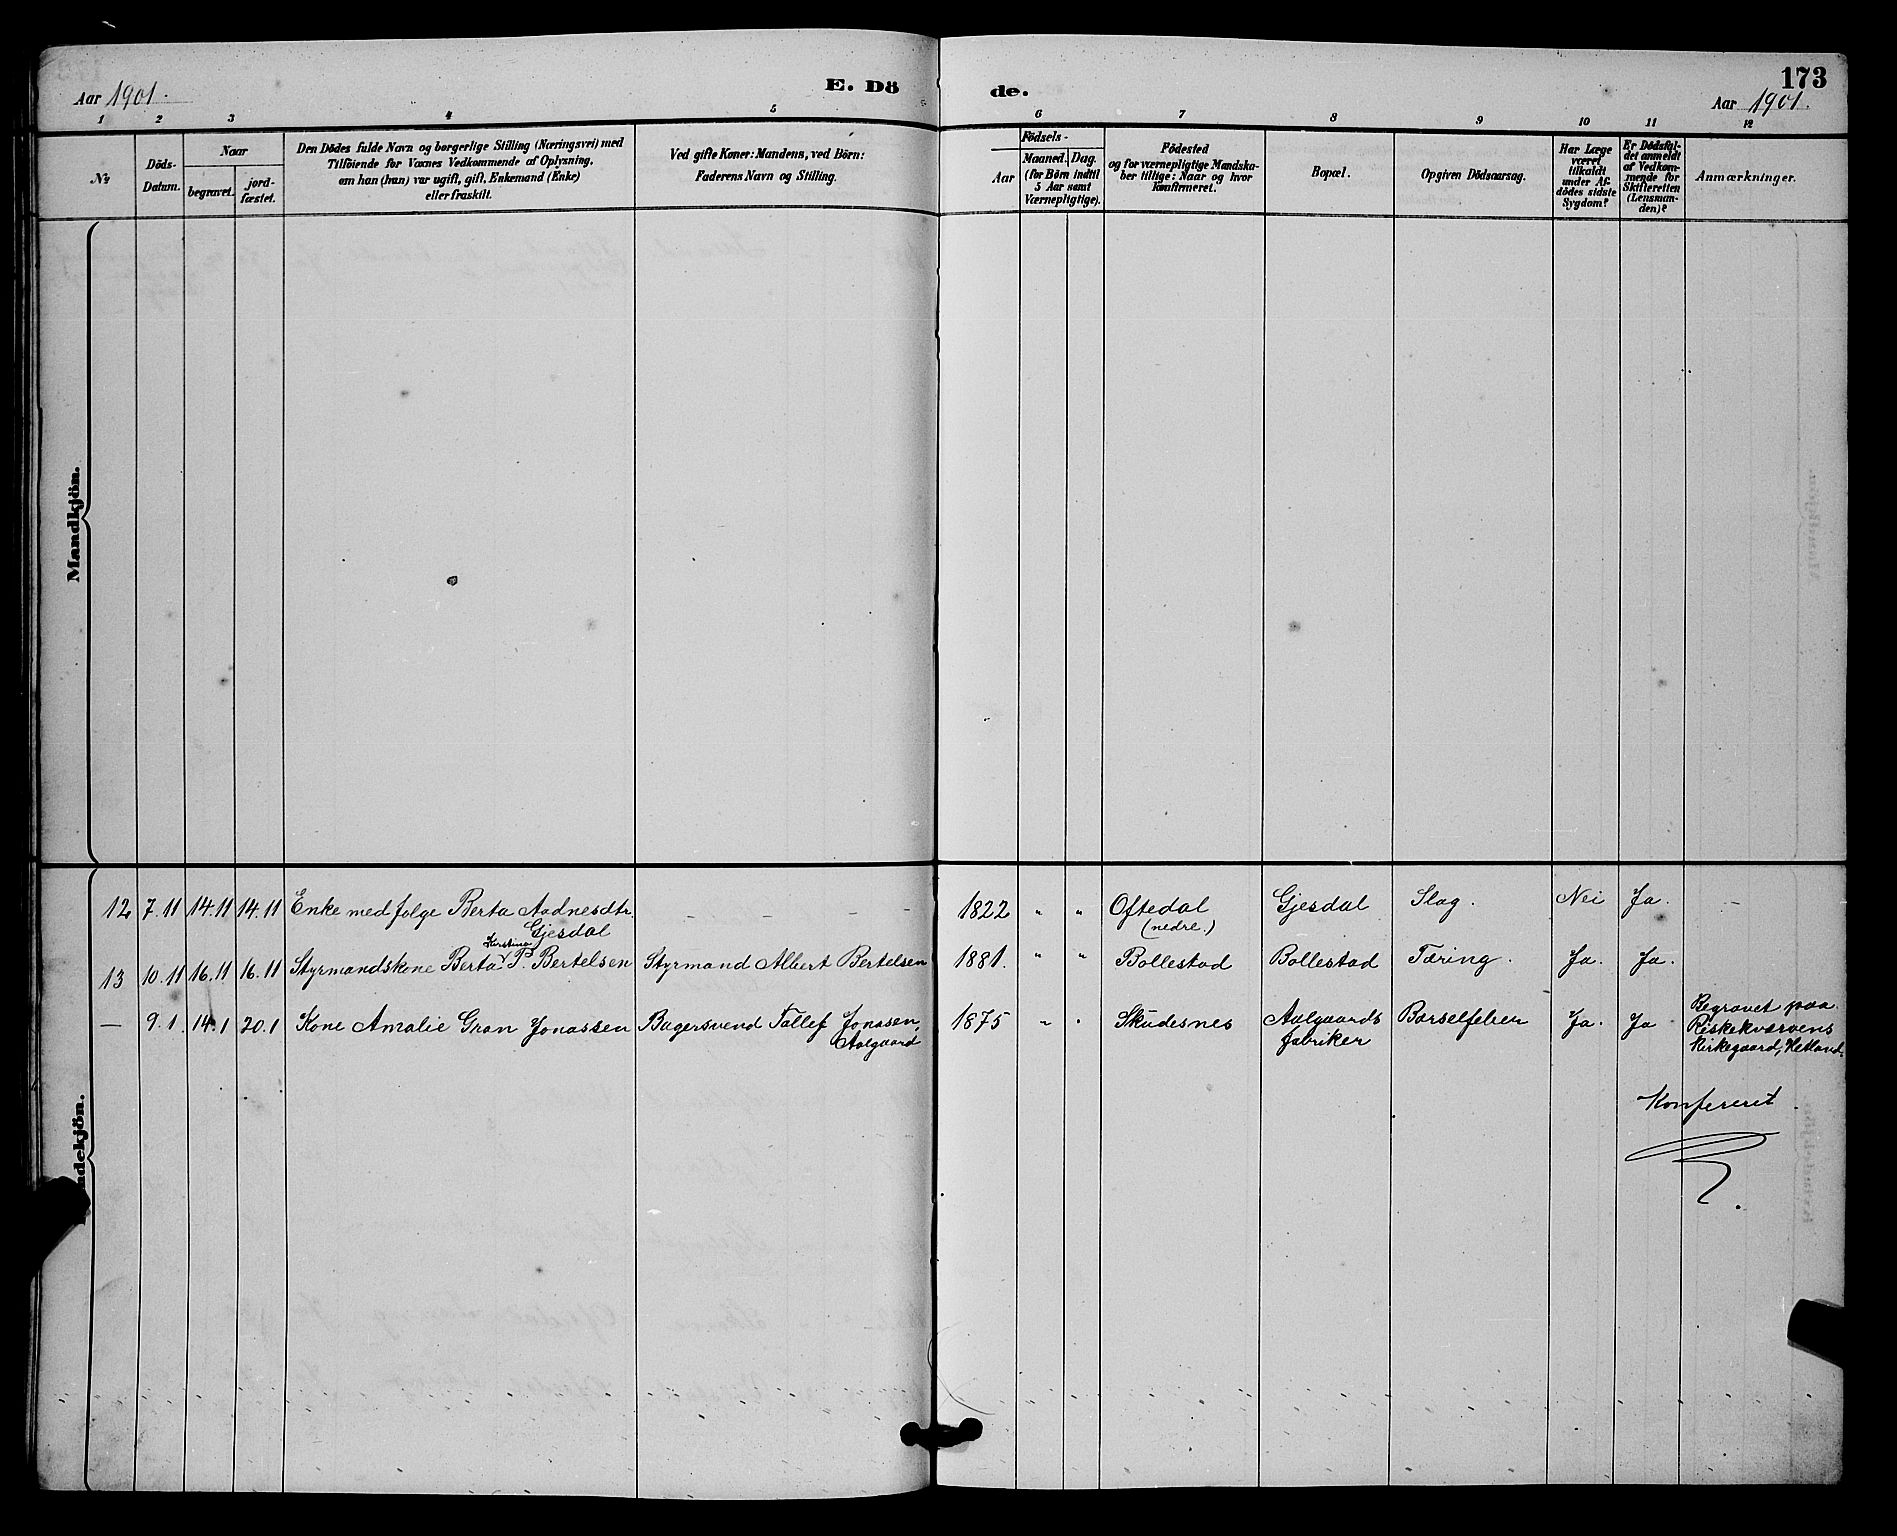 173
Aar 1901.
E. Dö
de.
Aar 1901.
1 2 3 4 5 6 7 8 9 10 11 12
No
Döds-
Datum.
Naar
begravet.
jord-
fæstet.
Den Dödes fulde Navn og borgerlige Stilling (Næringsvei) med
Tilföiende for Voxnes Vedkommende af Oplysning,
om han (hun) var ugift, gift, Enkemand (Enke)
eller fraskilt.
Ved gifte Koner: Mandens, ved Börn:
Faderens Navn og Stilling.
Födsels-
Aar
Maaned. Dag.
(for Börn indtil
5 Aar samt
Værnepligtige).
Födested
og for værnepligtige Mandska-
ber tillige: Naar og hvor
Konfirmeret.
Bopæl.
Opgiven Dödsaarsag.
Har Læge
været
tilkaldt
under Af-
dödes sidste
Sygdom?
Er Dödsfal-
det anmeldt
af Vedkom-
mende for
Skifteretten
(Lensman-
den)?
Anmærkninger.
Mandkjön.
12 7.11 14.11 14.11 Enke med folge Berta Aadnesdtr. – – – – 1822 " " Oftedal Gjesdal Slag. Nei Ja. –
Gjesdal
(nedre.)
Kirstine
13 10.11 16.11 16.11 Styrmandskone Berta P. Bertelsen Styrmand Albert Bertelsen 1881. " " Bollestad Bollestad Tæring. Ja. Ja.
— 9.1. 14.1 20.1 Kone Amalie Gran Jonassen Bagersvend Tallef Jonasen, 1875 " " Skudesnes Aalgaards Barselfeber Ja. Ja
Aalgaard
fabriker
Begravet paa
Riskekværvens
Kirkegaard, Hetland.
Konfereret
ndekjön.